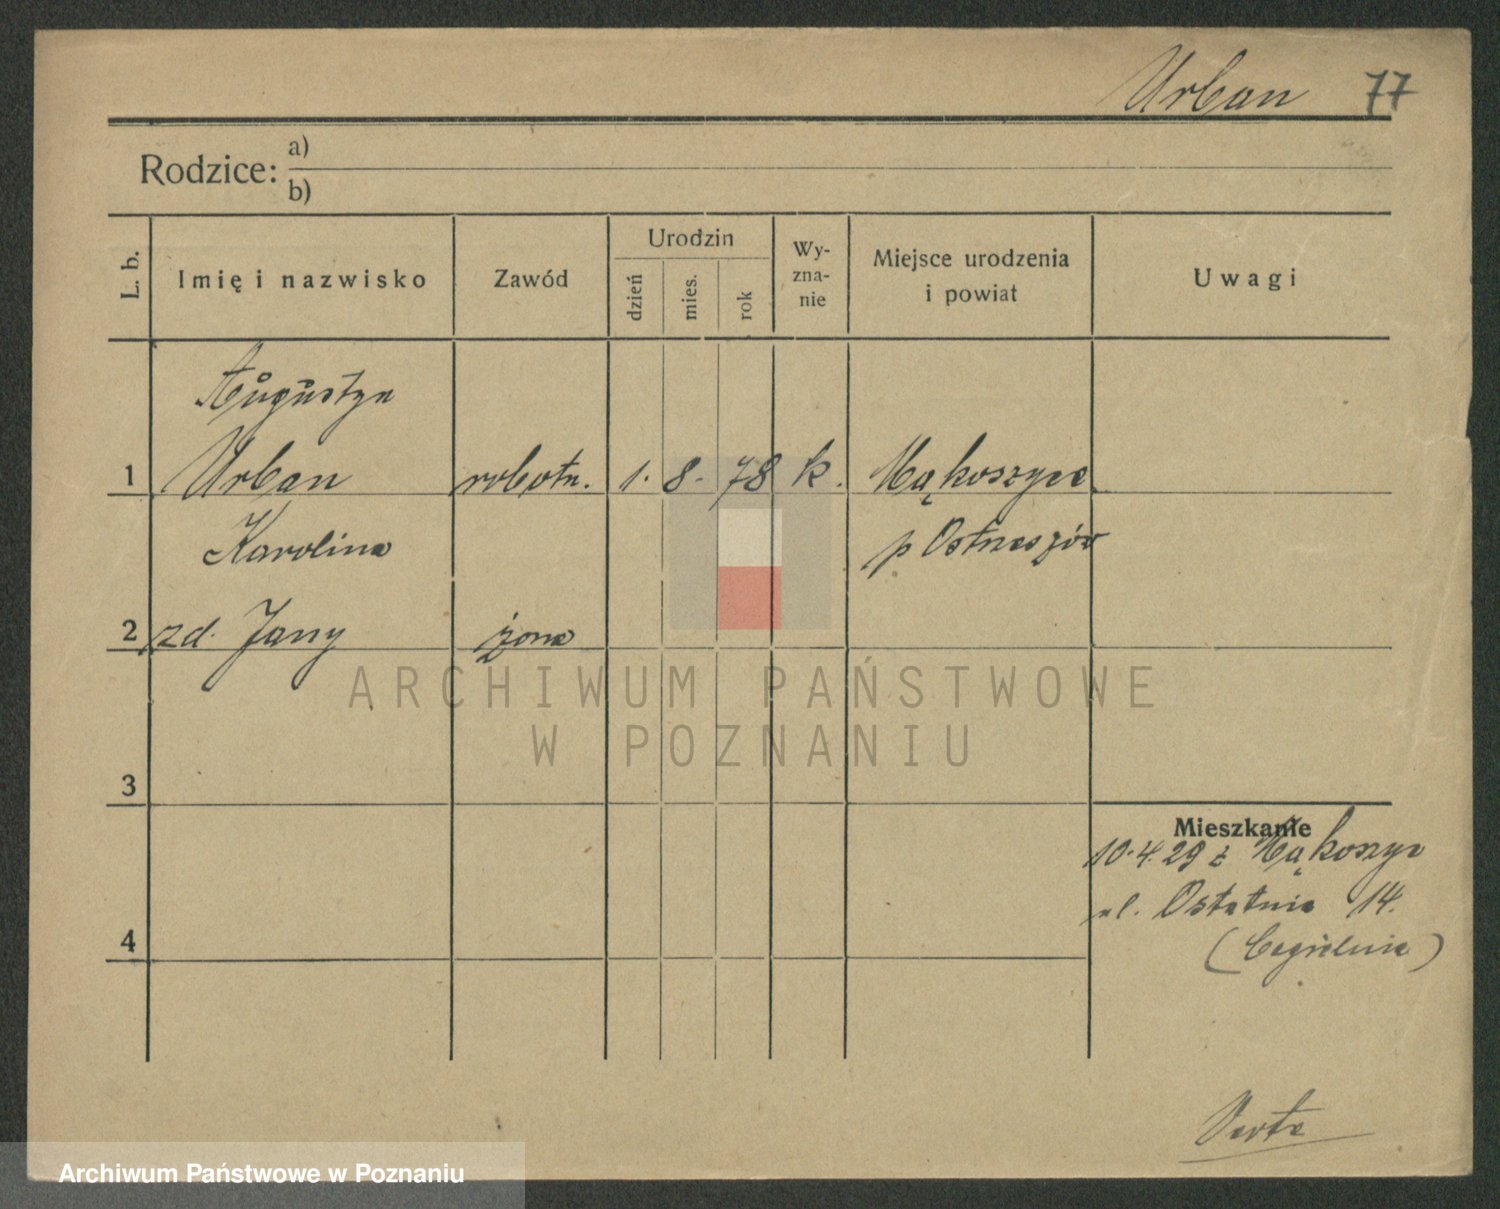 Urban 77
Rodzice: a)
b)
L. b.
Imię i nazwisko
Zawód
Urodzin
dzień
mies.
rok
Wy-
zna-
nie
Miejsce urodzenia
i powiat
Uwagi
Augustyn
1 Urban robotn. 1. 8. 78 k. Mąkoszyce
Karolina p Ostrzeszów
2 zd. Jany żona
3
4
Mieszkanie
10.4.29 z Mąkoszyc
ul. Ostatnia 14.
(Cegielnia)
Verte
ARCHIWUM PAŃSTWOWE
W POZNANIU
Archiwum Państwowe w Poznaniu